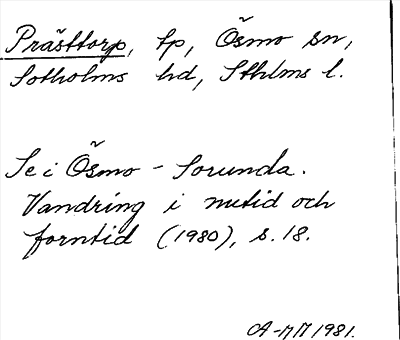 Prästtorp, tp, Ösmo sn,
Sotholms hd, Sthlms l.
Se i Ösmo - Sorunda.
Vandring i nutid och
forntid (1980), s. 18.
A-MM 1981.